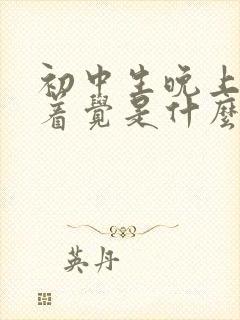 初中生晚上
着覺是什麽
英丹